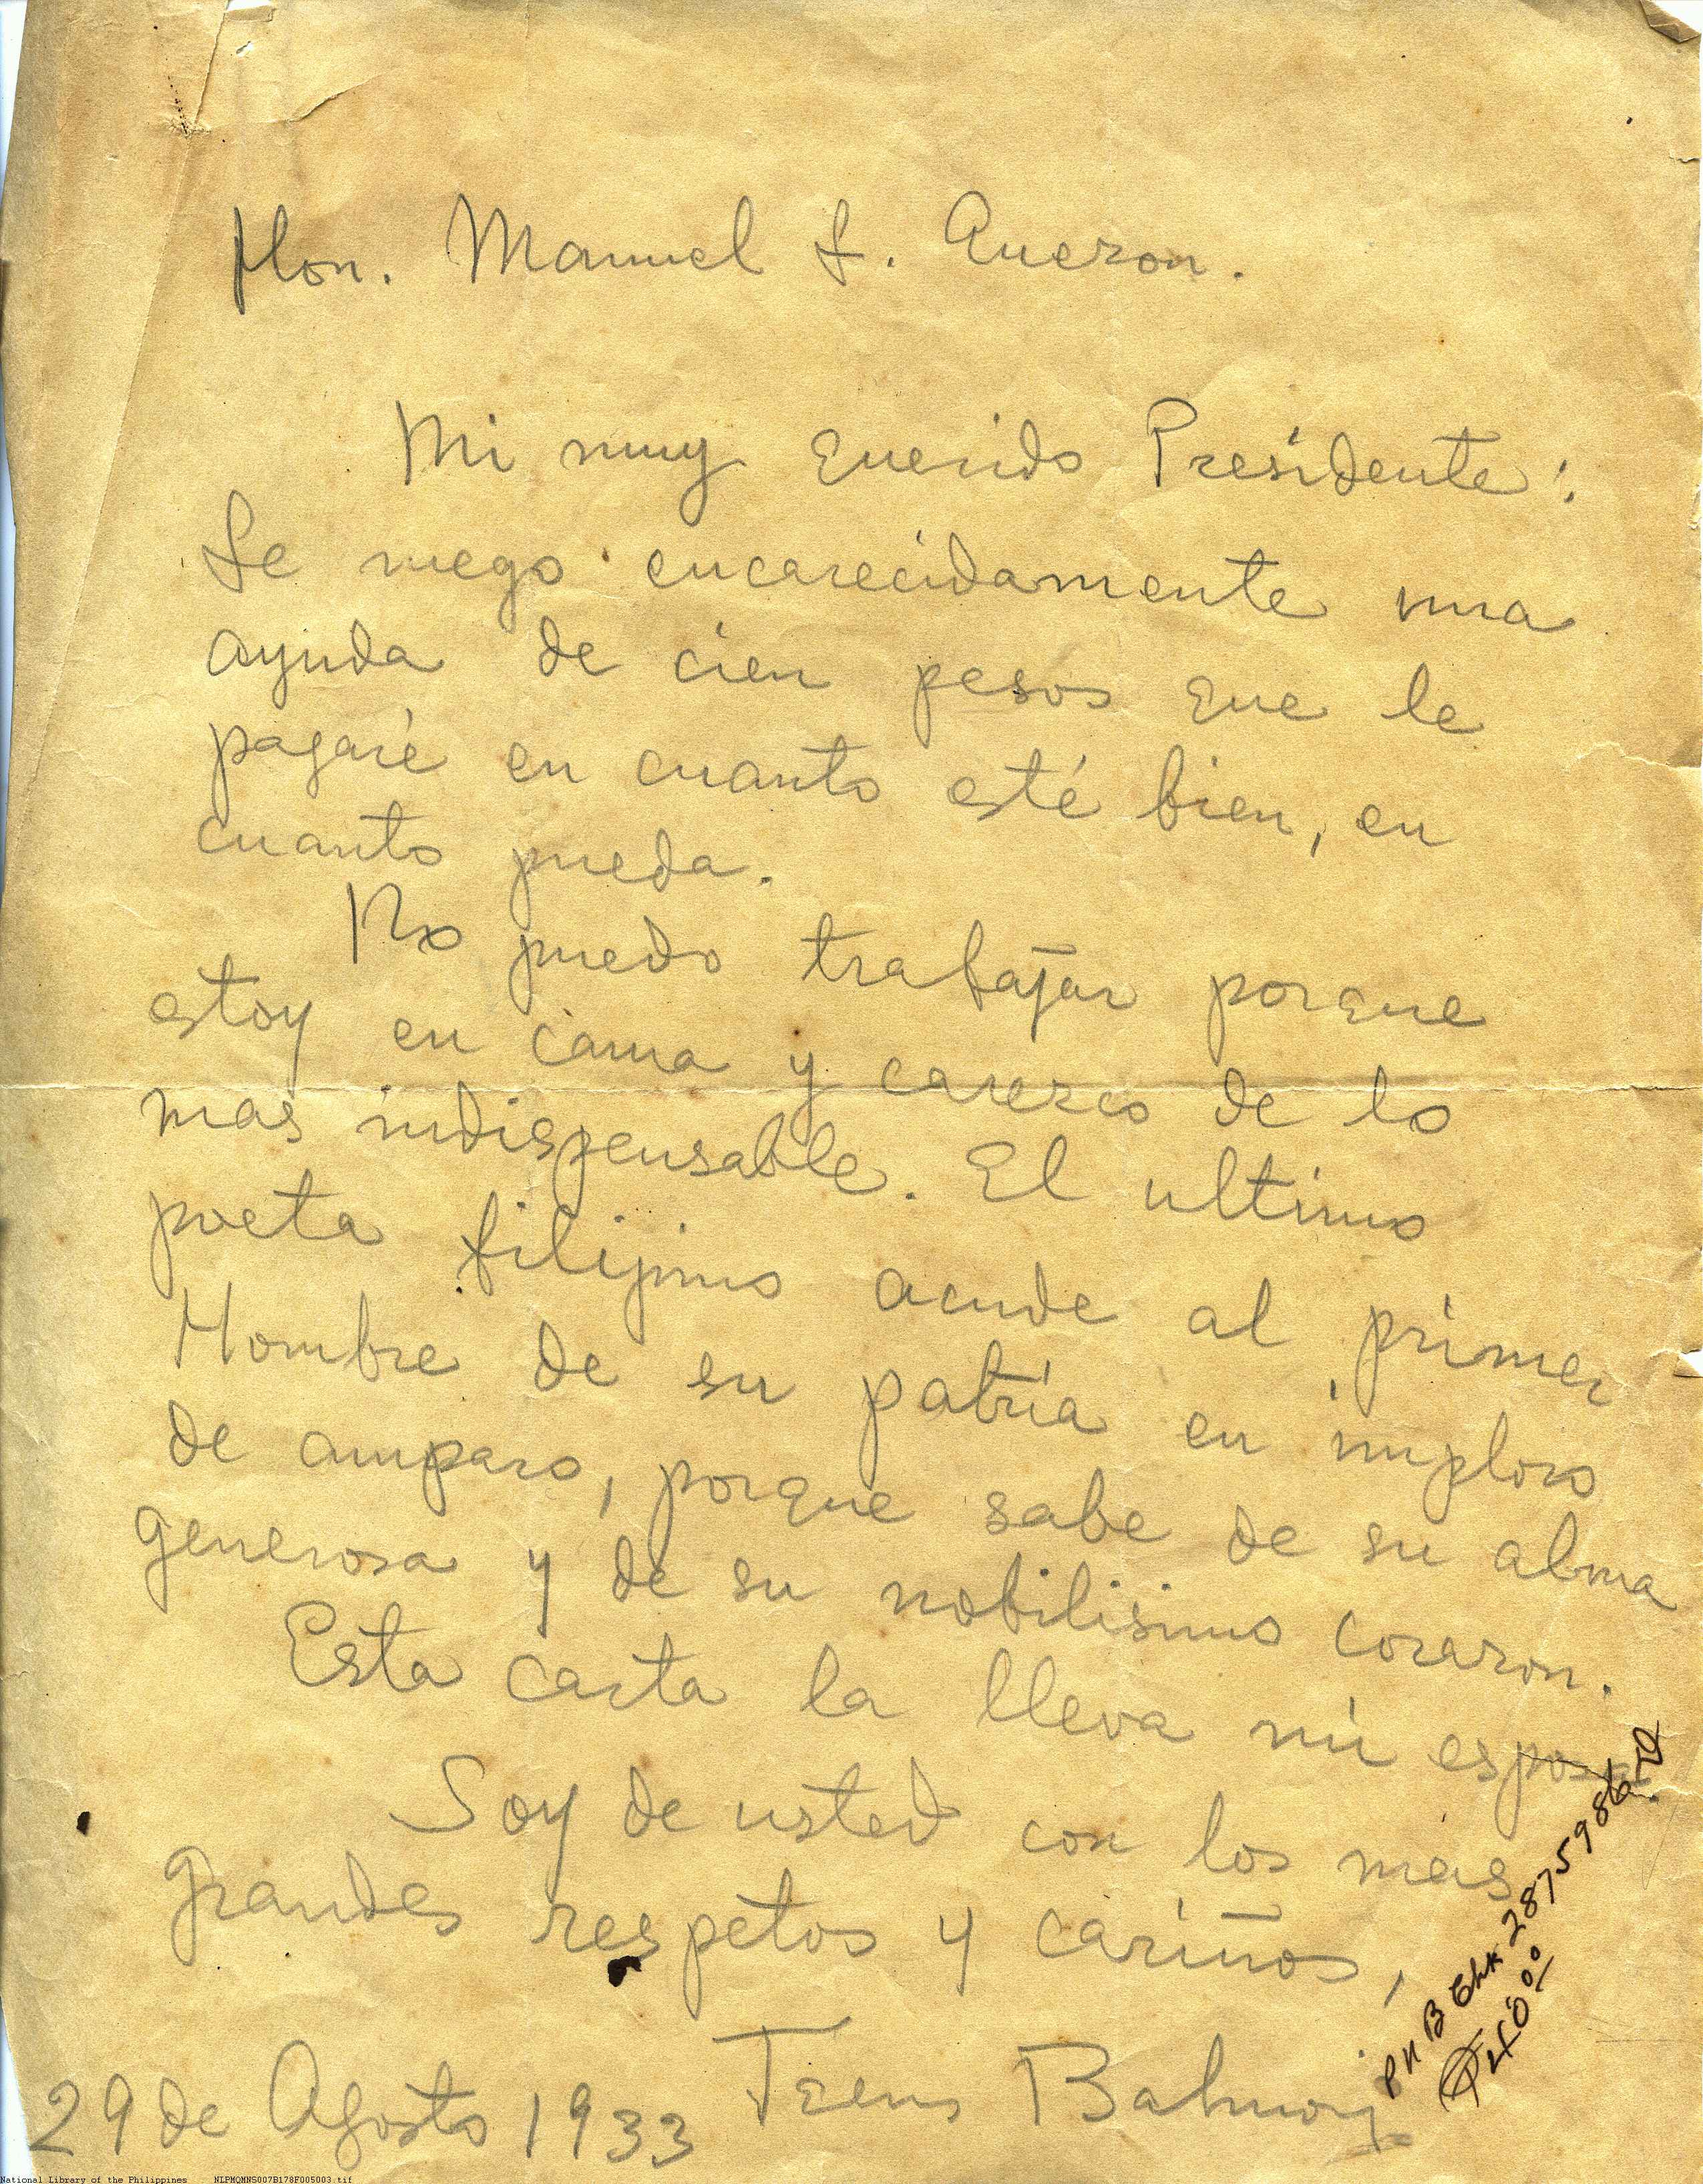 Hon. Manuel L. Quezon.
Mi muy querido Presidente:
Le ruego encarecidamente una
ayuda de cien pesos que le
pagaré en cuanto esté bien, en
cuanto pueda.
No puedo trabajar porque
estoy en cama y carezco de lo
mas indispensable. El ultimo
poeta filipino acude al primer
Hombre de su patria en imploro
de amparo, porque sabe de su alma
generosa y de su nobilisimo corazon.
Esta carta la lleva mi esposa.
Soy de usted con los mas
grandes respetos y cariños,
Jesus Balmori
29 de Agosto 1933
PNB Chk 287598
National Library of the Philippines NLPMQMNS007B178F005003.tif